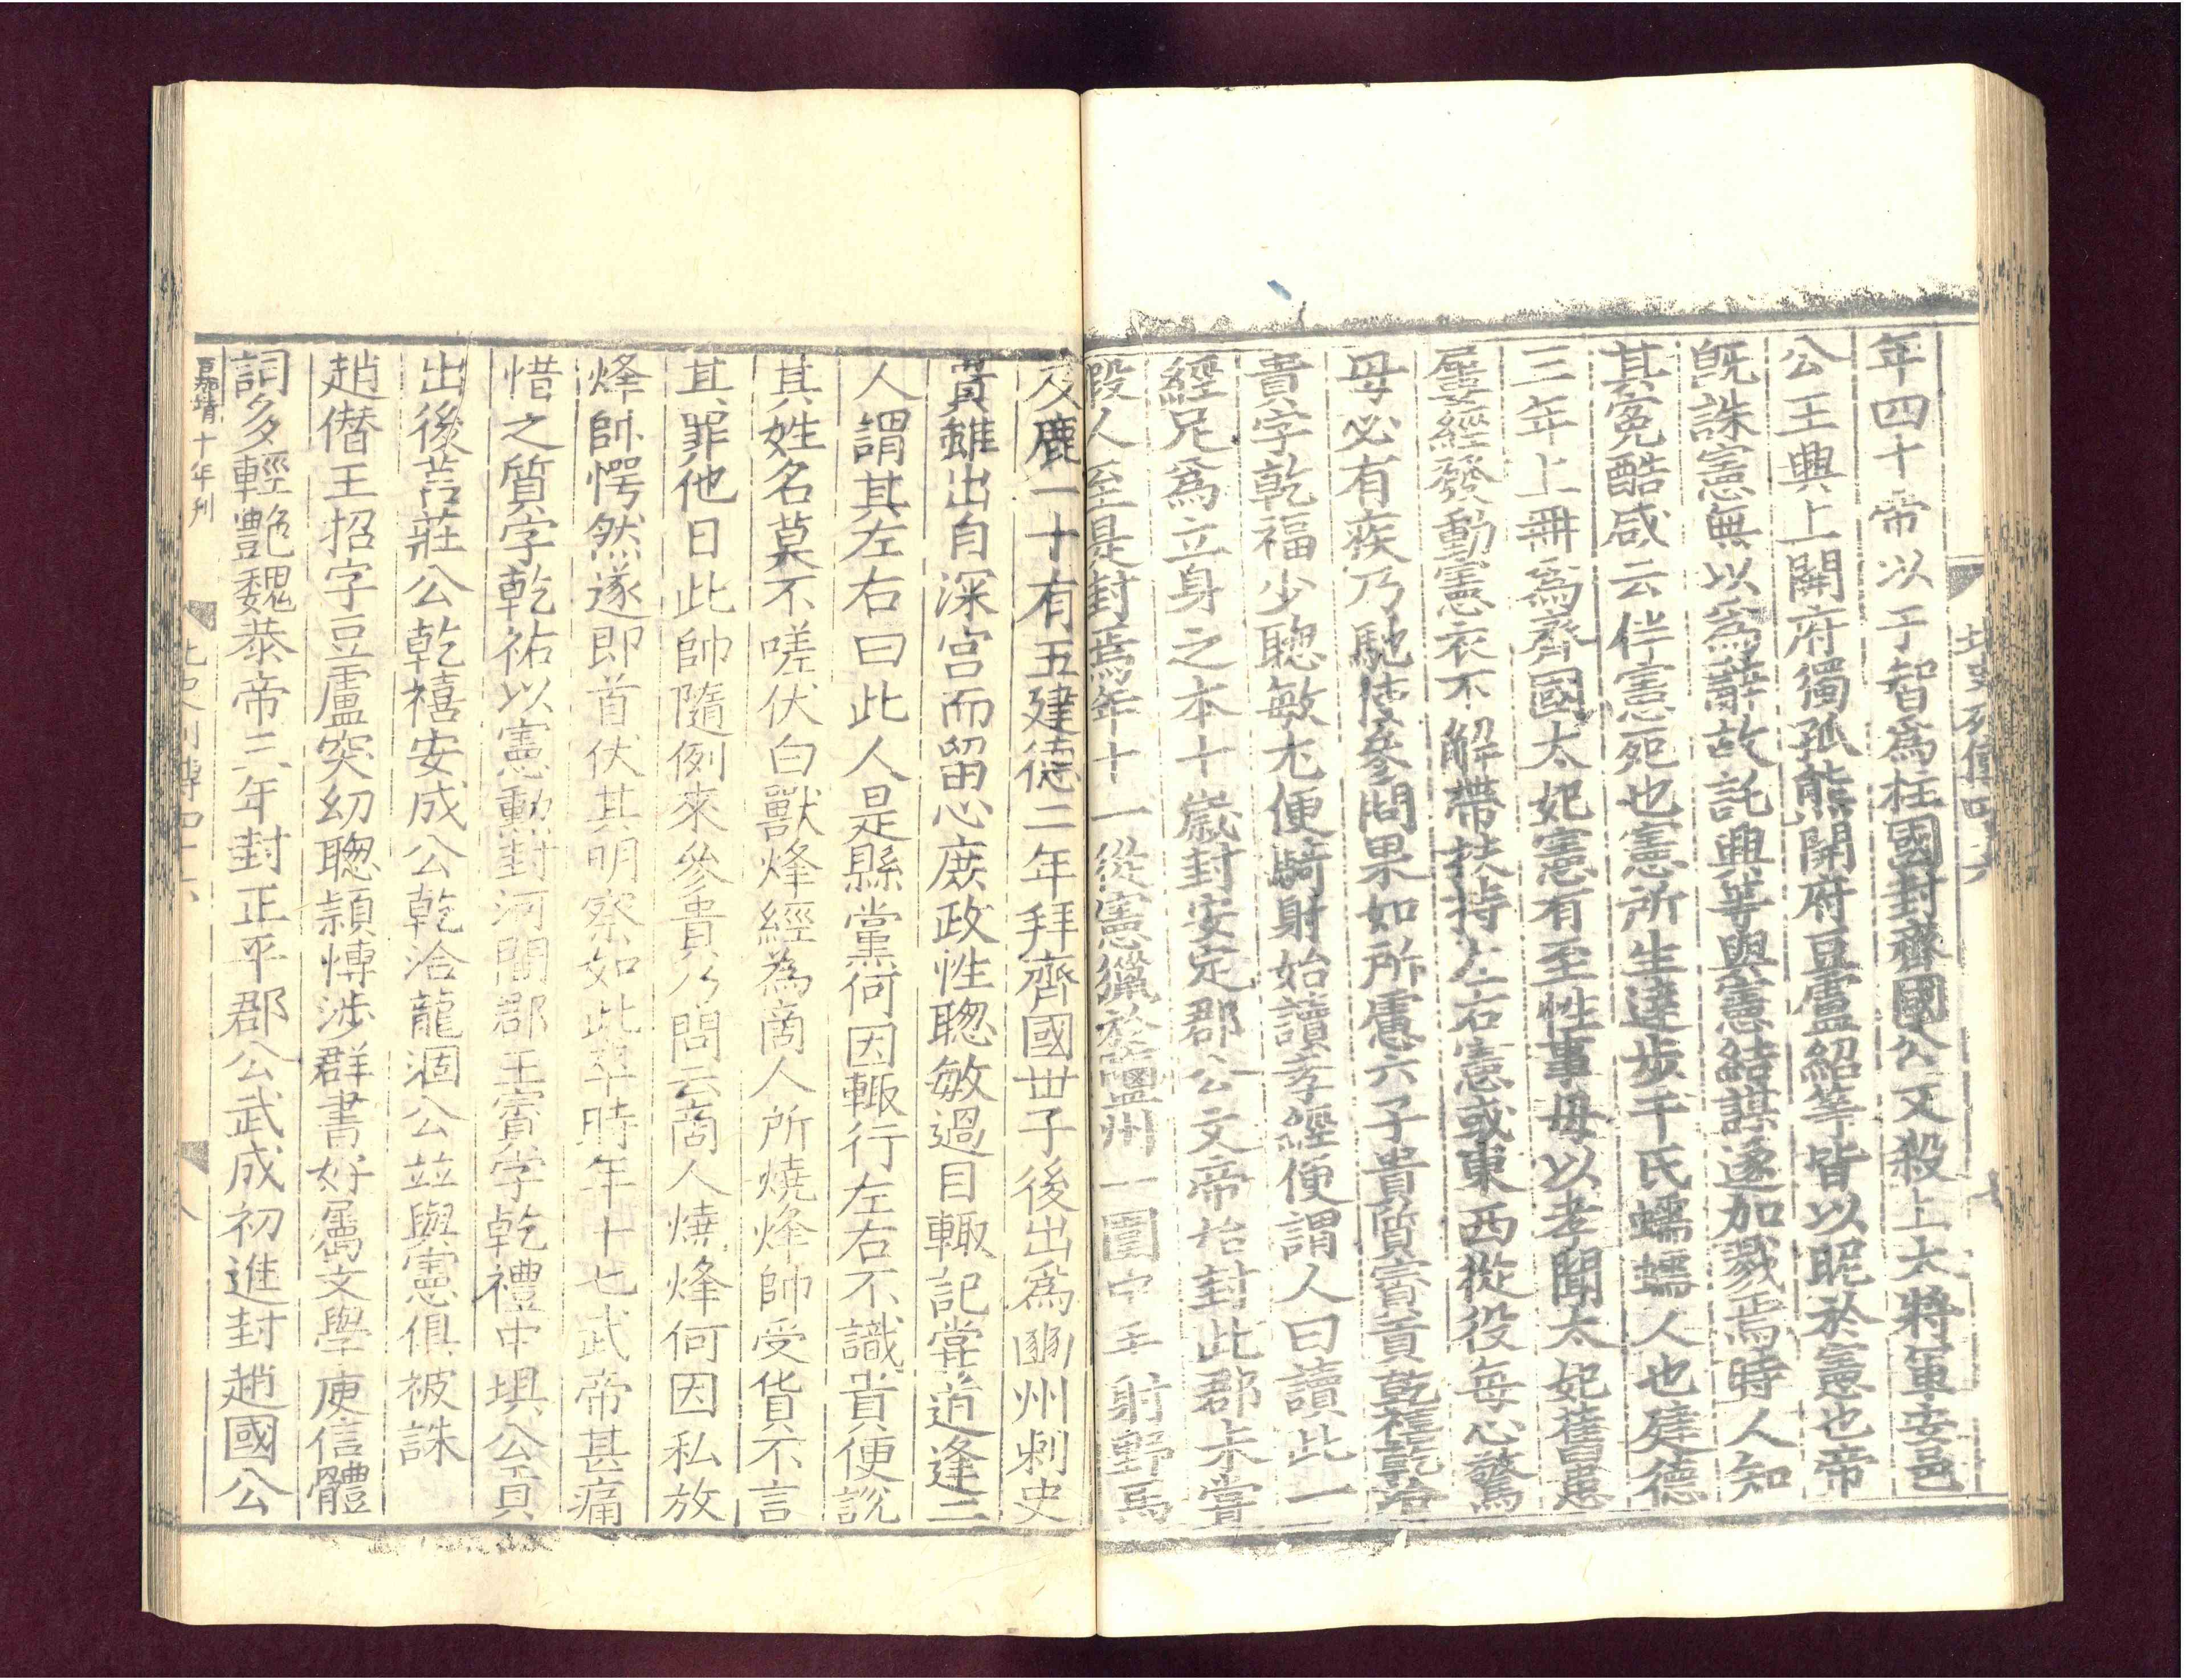 年四十帝以于智爲柱國封齊國公又殺上大將軍安邑
公王興上開府獨孤熊開府豆盧紹等皆以昵於憲也帝
旣誅憲無以爲辭故託興等與憲結謀遂加戮焉時人知
其冤酷咸云伴憲死也憲所生達步干氏蠕蠕人也建德
三年上冊爲齊國太妃憲有至性事母以孝聞太妃舊患
屢經發動憲衣不解帶扶持左右憲或東西從役每心驚
母必有疾乃馳使參問果如所慮六子貴質賓貢乾禧乾洽
貴字乾福少聰敏尤便騎射始讀孝經便謂人曰讀此一
經足爲立身之本十歲封安定郡公文帝始封此郡未嘗
假人至是封焉年十一從憲獵於鹽州一圍中手射野馬
及鹿一十有五建德二年拜齊國世子後出爲豳州刺史
貴雖出自深宮而留心庶政性聰敏過目輒記嘗道逢二
人謂其左右曰此人是縣黨何因輒行左右不識貴便說
其姓名莫不嗟伏白獸烽經為商人所燒烽帥受貨不言
其罪他日此帥隨例來參貴乃問云商人燒烽何因私放
烽帥愕然遂即首伏其明察如此卒時年十七武帝甚痛
惜之質字乾祐以憲勳封河間郡王賓字乾禮中垻公貢
出後莒莊公乾禧安成公乾洽龍涸公並與憲俱被誅
趙僣王招字豆盧突幼聰頴愽涉群書好屬文學庾信體
詞多輕艷魏恭帝三年封正平郡公武成初進封趙國公
北史列傳四十六 八